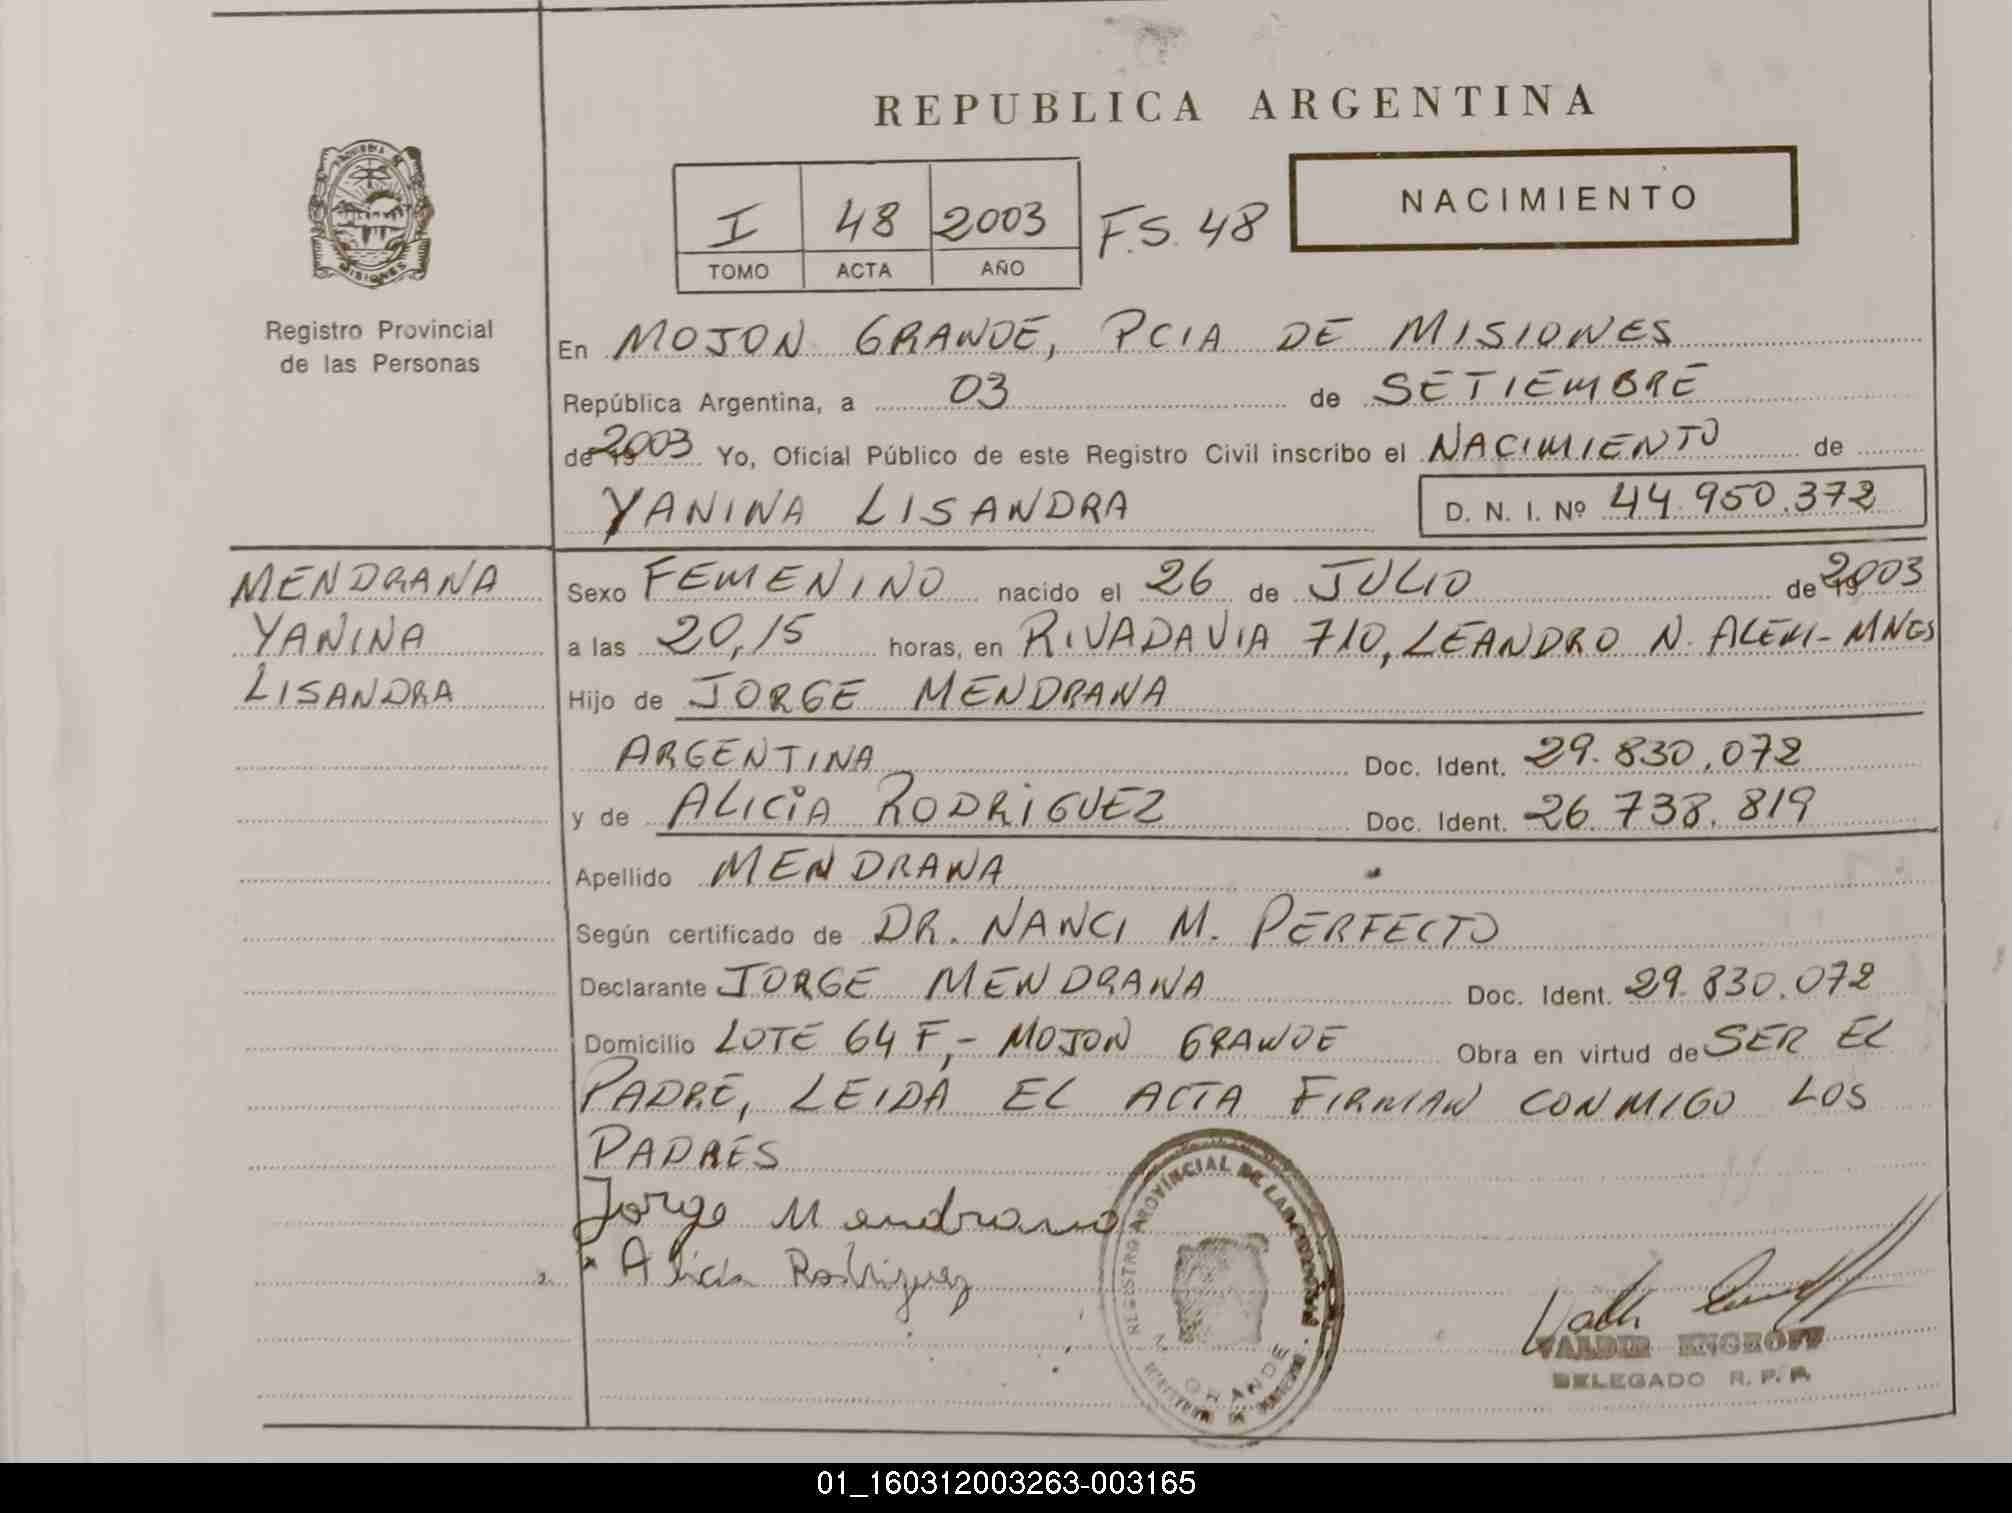 REPUBLICA ARGENTINA
NACIMIENTO
I 48 2003 F.S. 48
TOMO ACTA AÑO
MISIONES
Registro Provincial
de las Personas
En MOJON GRANDE, PCIA DE MISIONES
República Argentina, a 03 de SETIEMBRE
de 2003 Yo, Oficial Público de este Registro Civil inscribo el NACIMIENTO de
YANINA LISANDRA D. N. I. Nº 44.950.372
MENDRANA
YANINA
LISANDRA
Sexo FEMENINO nacido el 26 de JULIO de 2003
a las 20,15 horas, en RIVADAVIA 710, LEANDRO N. ALEM - MNES
Hijo de JORGE MENDRANA
ARGENTINA Doc. Ident. 29.830.072
y de ALICIA RODRIGUEZ Doc. Ident. 26.738.819
Apellido MENDRANA
Según certificado de DR. NANCI M. PERFECTO
Declarante JORGE MENDRANA Doc. Ident. 29.830.072
Domicilio LOTE 64 F,- MOJON GRANDE Obra en virtud de SER EL
PADRE, LEIDA EL ACTA FIRMAN CONMIGO LOS
PADRES
Jorge Mendrano
Alicia Rodriguez
REGISTRO PROVINCIAL DE LAS PERSONAS
M. GRANDE
VALDIR ENGROFF
DELEGADO R. P. P.
01_160312003263-003165